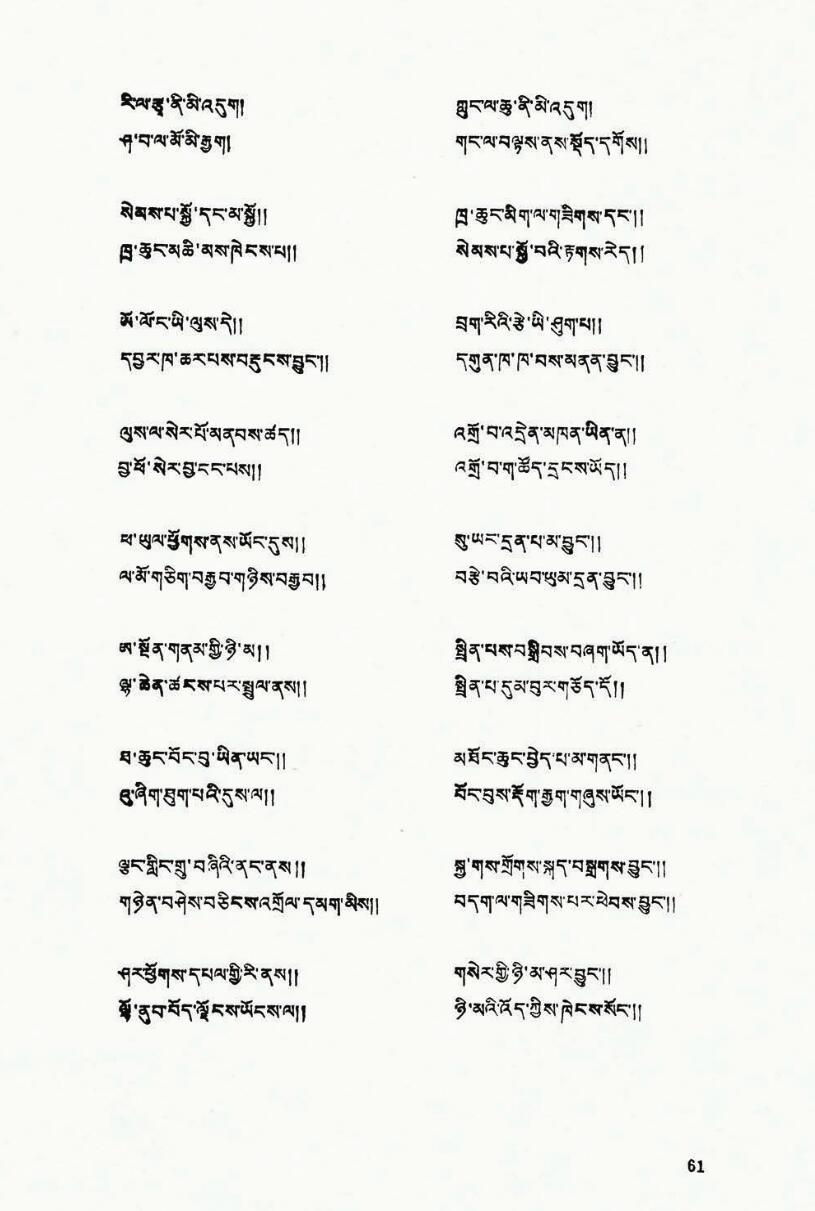 རི་ལ་རྩྭ་ནི་མི་འདུག།
ཀླུང་ལ་ཆུ་ནི་མི་འདུག།
ཤ་བ་ལ་མོ་མི་རྒྱག།
གང་ལ་བལྟས་ནས་སྡོད་དགོས།།
སེམས་པ་སྐྱོ་དང་མ་སྐྱོ།།
ཁྲ་ཆུང་མིག་ལ་གཟིགས་དང་།།
ཁྲ་ཆུང་མཆི་མས་ཁེངས་པ།།
སེམས་པ་སྐྱོ་བའི་རྟགས་རེད།།
ཨོ་ལོང་ཡི་ལུས་དེ།།
བྲག་རིའི་རྩེ་ཡི་ཤུག་པ།།
དབྱར་ཁ་ཆར་པས་བརྡུངས་བྱུང་།།
དགུན་ཁ་ཁ་བས་མནན་བྱུང་།།
ལུས་ལ་སེར་པོ་མནབས་ཚད།།
འགྲོ་བ་འདྲེན་མཁན་ཡིན་ན།།
བྱ་ཕོ་སེར་བྱ་ངང་པས།།
འགྲོ་བ་ག་ཚོད་དྲངས་ཡོད།།
ཕ་ཡུལ་ཕྱོགས་ནས་ཡོང་དུས།།
སུ་ཡང་དྲན་པ་མ་བྱུང་།།
ལ་མོ་གཅིག་བརྒྱབ་གཉིས་བརྒྱབ།།
བརྩེ་བའི་ཡབ་ཡུམ་དྲན་བྱུང་།།
ཨ་སྔོན་གནམ་གྱི་ཉི་མ།།
སྤྲིན་པས་བསྒྲིབས་བཞག་ཡོད་ན།།
ལྷ་ཆེན་ཚངས་པར་སྤྲུལ་ནས།།
སྤྲིན་པ་དུམ་བུར་གཅོད་དོ།།
ཐ་ཆུང་བོང་བུ་ཡིན་ཡང་།།
མཐོང་ཆུང་བྱེད་པ་མ་གནང་།།
ཕུ་ཞིག་ཐུག་པའི་དུས་ལ།།
བོང་བུས་རྡོག་རྒྱག་གཞུས་ཡོང་།།
ལྕང་གླིང་གྲུ་བཞིའི་ནང་ནས།།
སྐྱ་གས་གྲོགས་སྐད་བསྒྲགས་བྱུང་།།
གཉེན་བཤེས་བཅིངས་འགྲོལ་དམག་མིས།།
བདག་ལ་གཟིགས་པར་ཕེབས་བྱུང་།།
ཤར་ཕྱོགས་དཔལ་གྱི་རི་ནས།།
གསེར་གྱི་ཉི་མ་ཤར་བྱུང་།།
ལྷོ་ནུབ་བོད་ལྗོངས་ཡོངས་ལ།།
ཉི་མའི་འོད་ཀྱིས་ཁེངས་སོང་།།
61